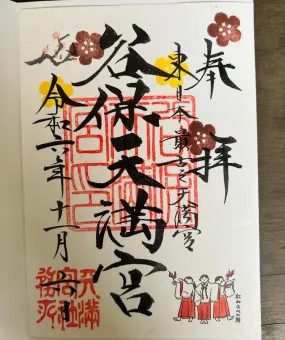 奉拝
東日本最古之天満宮
谷保天満宮
令和二年十一月六日
天満
宮社
務所